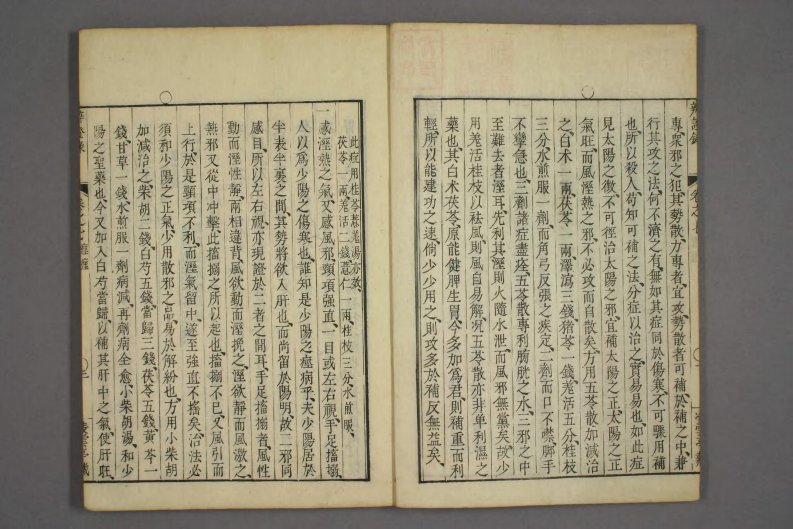 專衆邪之犯其勢散方專者宜攻勢散者可補於補之中兼
行其攻之法何不濟之有無如其症同於傷寒不可驟用補
也所以殺人苟知可補之法分症以治之實易易也如此症
見太陽之徵不可徑治太陽之邪宜補太陽之正太陽之正
氣旺而風溼熱之邪不必攻而自散矣方用五苓散加減治
之白朮一兩茯苓一兩澤瀉三錢猪苓一錢羌活五分桂枝
三分水煎服一劑而角弓反張之疾定二劑而口不噤脚手
不攣急也三劑諸症盡痊五苓散專利膀胱之水三邪之中
至難去者溼耳先利其溼則火隨水泄而風邪無黨矣故少
用羌活桂枝以袪風則風自易解況五苓散亦非單利濕之
藥也其白朮茯苓原能健脾生胃今多加爲君則補重而利
輕所以能建功之速倘少少用之則攻多於補反無益矣
此症用桂苓薏羌湯亦效
茯苓一兩羌活二錢薏仁一兩桂枝三分水煎服
一感溼熱之氣又感風邪頸項強直一目或左右視手足搐搦
人以爲少陽之傷寒也誰知是少陽之痙病乎夫少陽居於
半表半裏之間其勢將欲入肝也而尚留於陽明故二邪同
感目所以左右視亦現證於二者之間耳手足搐搦者風性
動而溼性靜兩相違背風欲動而溼挽之溼欲靜而風激之
熱邪又從中衝擊此搐搦之所以起也搐搦不已又風引而
上行於是頸項不利而溼氣留中遂至強直不搖矣治法必
須和少陽之正氣少用散邪之品易於解紛也方用小柴胡
加減治之柴胡二錢白芍五錢當歸三錢茯苓五錢黃芩一
錢甘草一錢水煎服一劑病減再劑病全愈小柴胡湯和少
陽之聖藥也今又加入白芍當歸以補其肝中之氣使肝旺